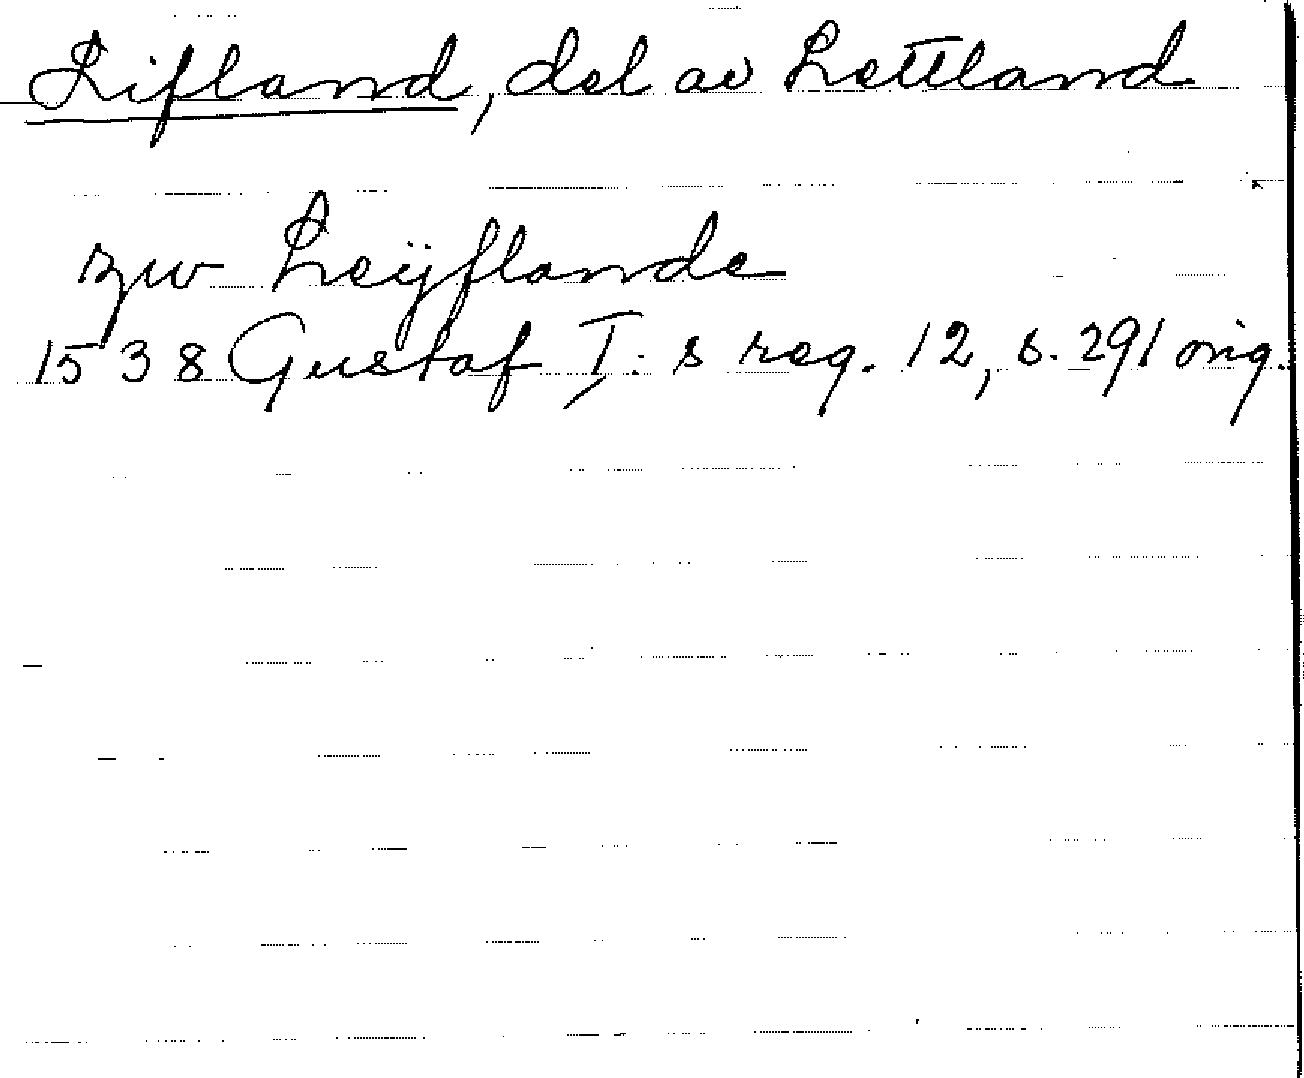 Lifland, del av Lettland
zw Leÿflande
1538 Gustaf I:s reg. 12, s. 291 orig.